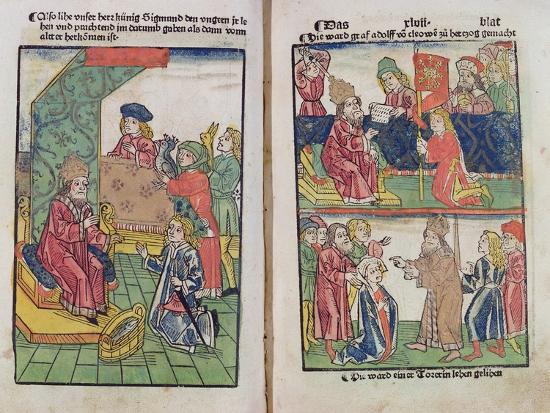 Also lihe unser herr künig Sigmund den ungern je le
hen und prachtend im darumb gaben als dann vonn
alter herkomen ist·
Das xlvii· blat
Die ward graf adolff vō cleowē zů hertzog gemacht
Die ward einer Torerin lehen gelihen